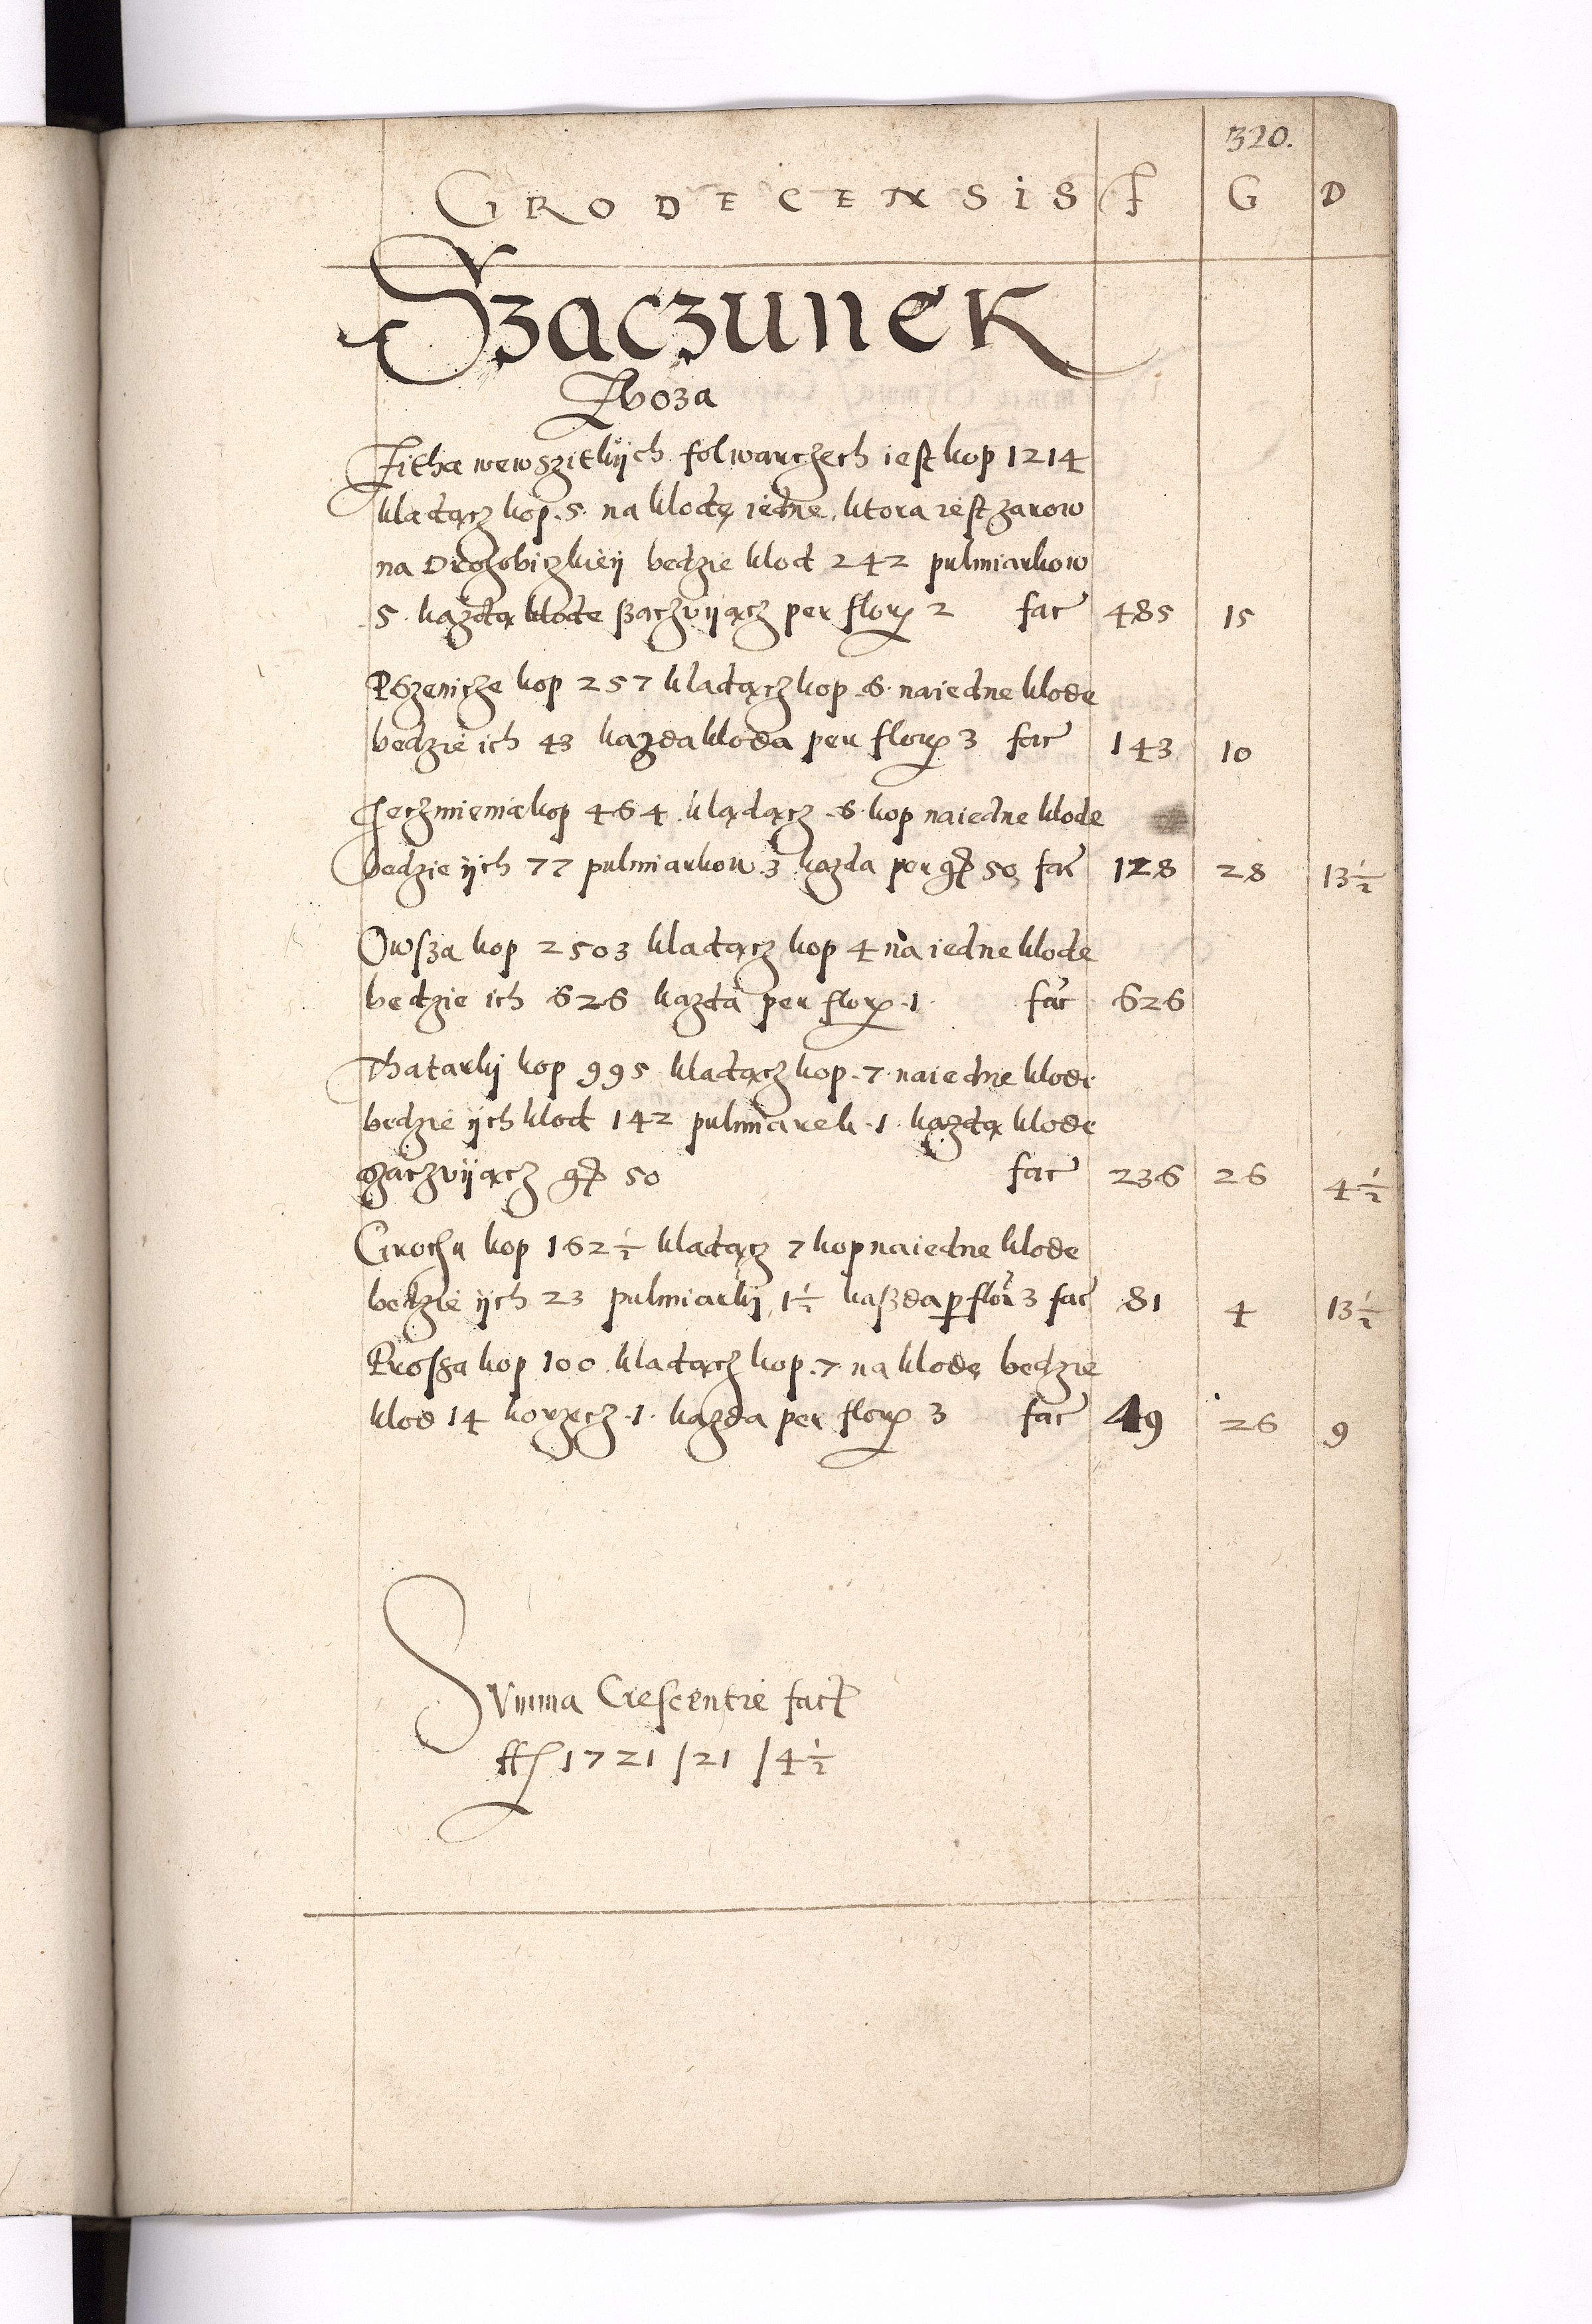 320.
GRODECENSIS F G D
Szaczunek
Zboza
Zitha wewszitkijch folwarczech iest kop 1214
kladącz kop .5. na klodę iedne, ktora iest zarow
na Drohobiczkieij bedzie klod 242 pulmiarkow
5. kazdą klode szaczvijącz per flor 2 fac 485 15
Pszenicze kop 257 kladącz kop .6. naiedne klode
bedzie ich 43 kazda kloda per flor 3 fac 143 10
Jeczmienia kop 464 kladącz .6. kop naiedne klode
bedzie ijch 77 pulmiarkow .3. kazda per gr 50 fac 128 28 13½
Owsza kop 2503 kladącz kop 4 na iedne klode
bedzie ich 626 kazda per flor .1. fac 626
Thatarkij kop 995 kladącz kop .7. naiedne klode
bedzie ijch klod 142 pulmiarek .1. kazdą klode
szaczvijącz gr 50 fac 236 26 4½
Grochu kop 162½ kladącz 7 kop naiedne klode
bedzie ijch 23 pulmiarkij 1½ kaszda p flor 3 fac 81 4 13½
Prossa kop 100 kladącz kop .7. na klodę bedzie
klod 14 korzecz .1. kazda per flor 3 fac 49 26 9
Summa Crescentie fact
ff 1721 / 21 / 4½